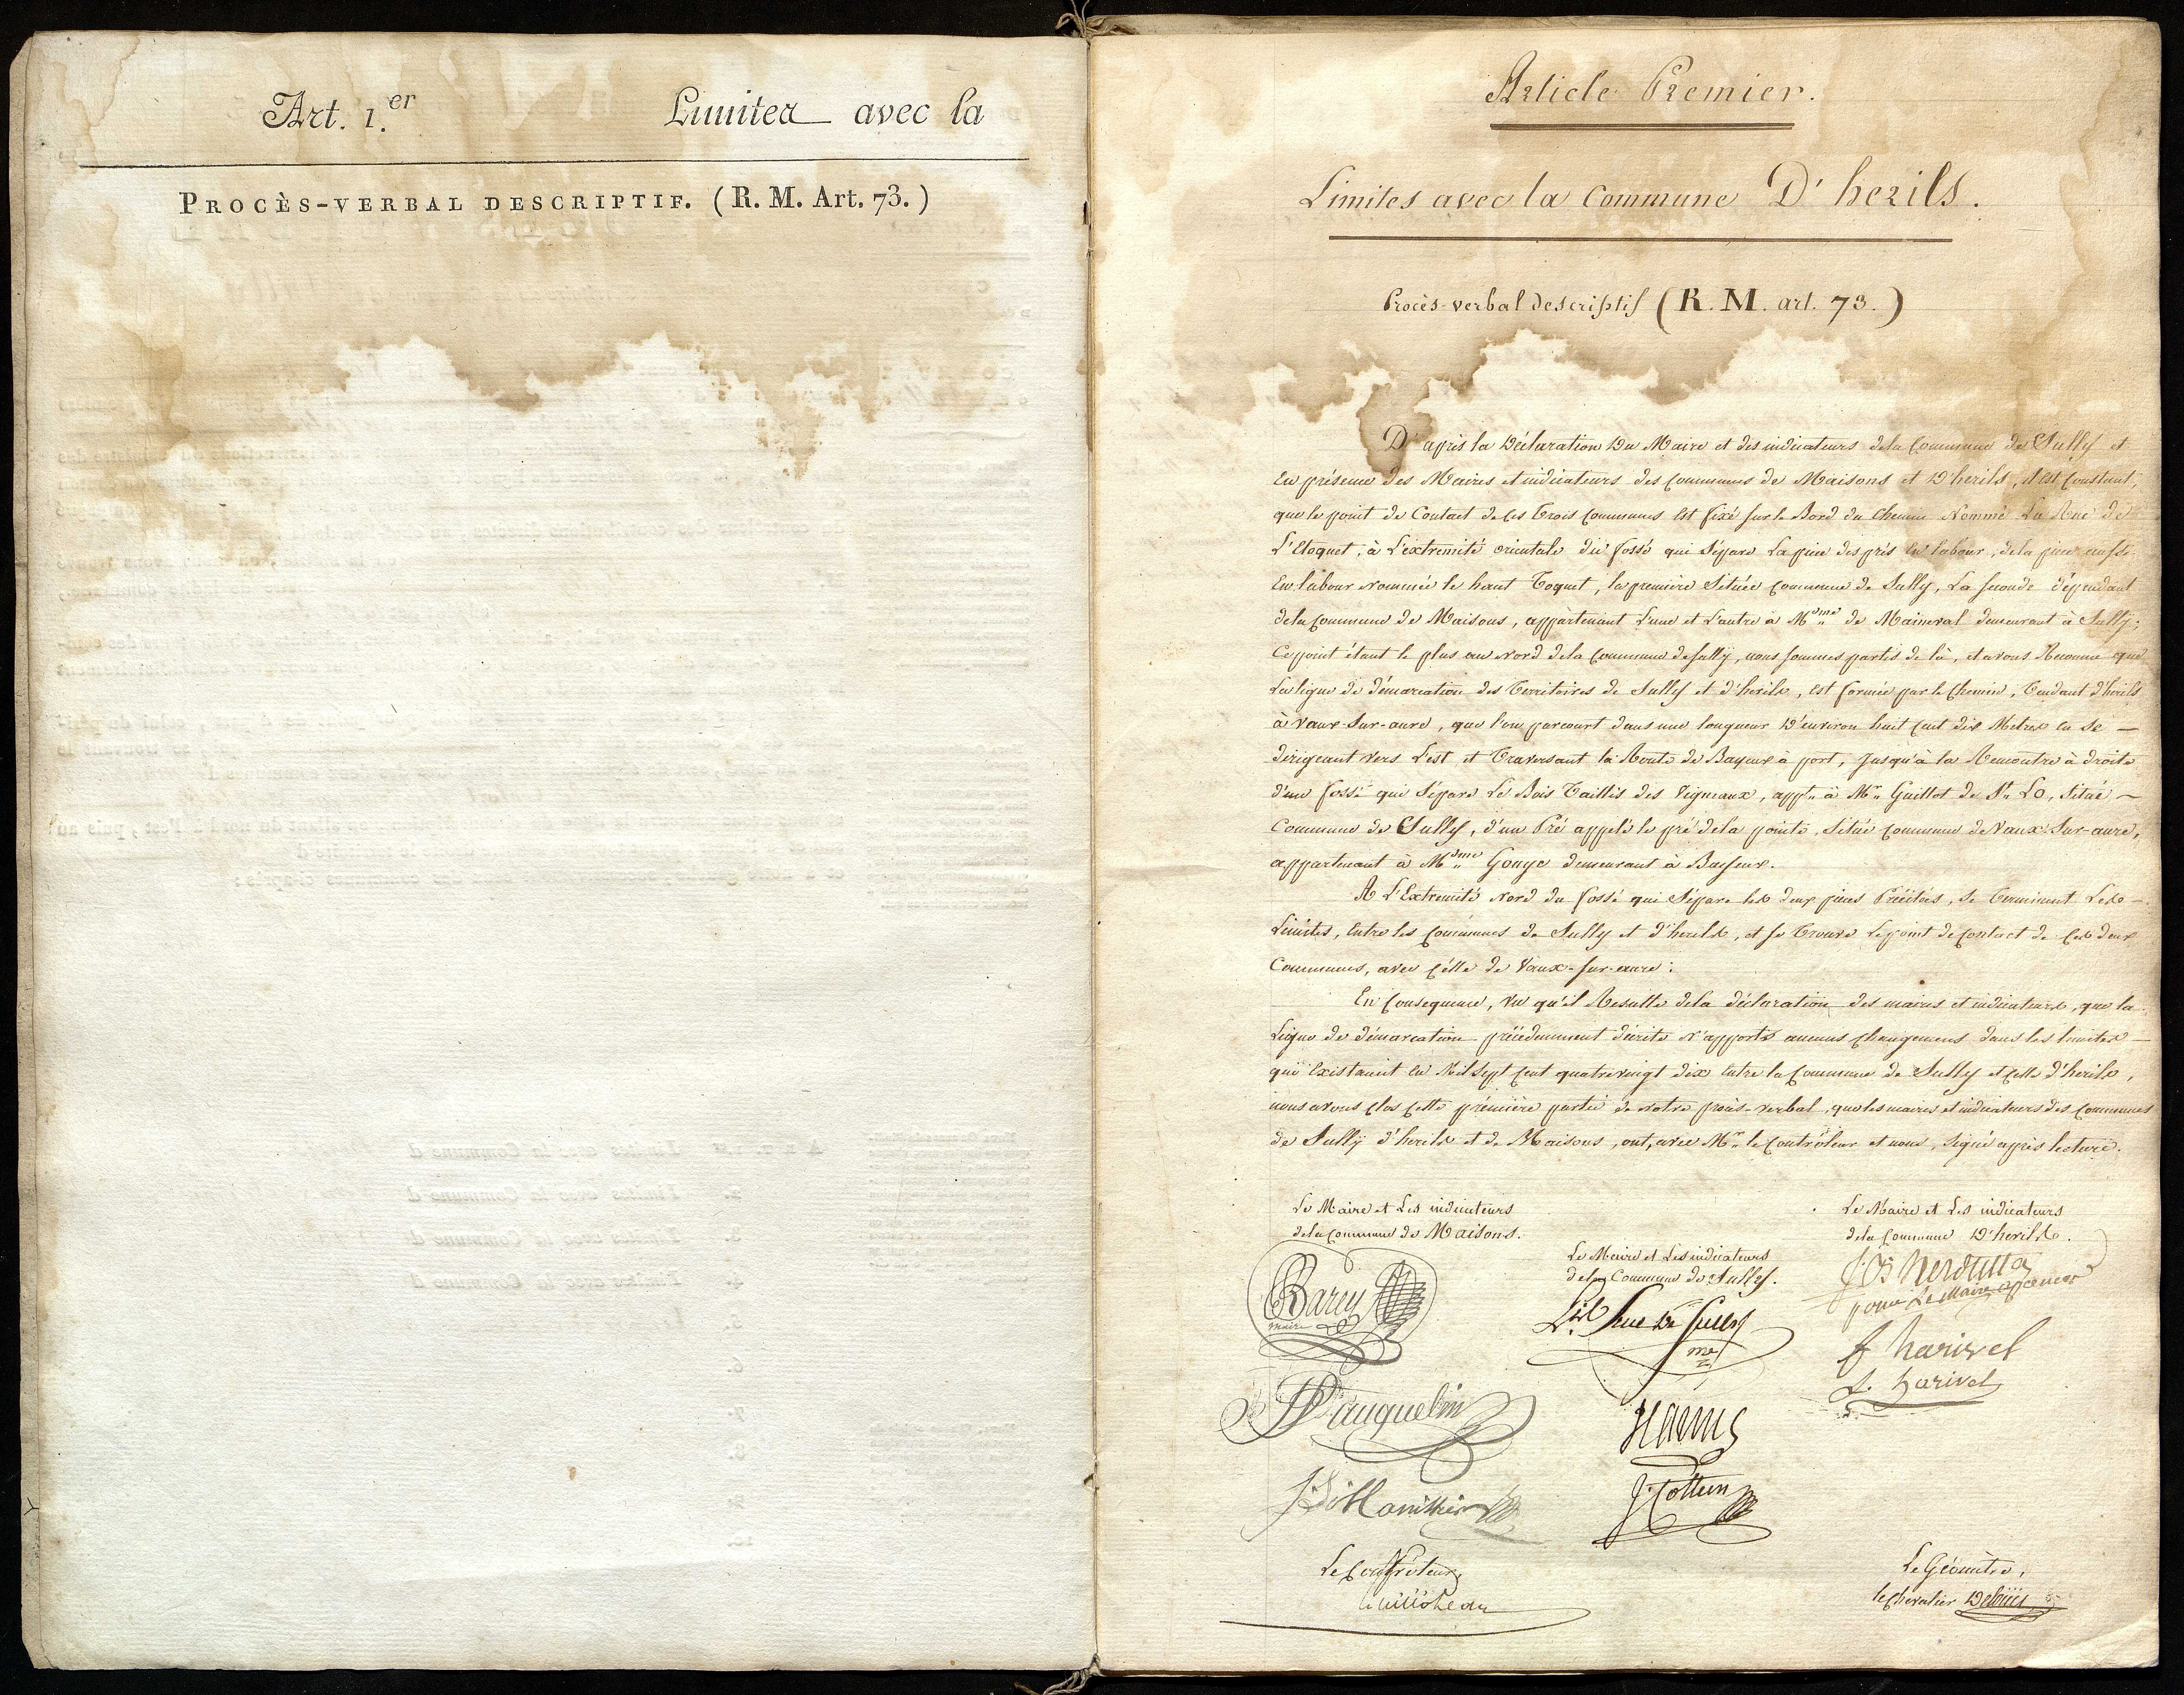 Art. 1.er Limites avec la
PROCÈS-VERBAL DESCRIPTIF. (R. M. Art. 73.)
Article Premier.
Limites avec la Commune D'herils.
Procès-verbal descriptif (R. M. art. 73.)
D'après la Déclaration Du Maire et des indicateurs de la Commune de Sully et
En présence des Maires et indicateurs des communes de Maisons et D'herils, il est constant,
que le point de Contact de ces Trois Communes est fixé sur le Bord du Chemin Nommé La Rue de
L'Etoquet, à L'extremité orientale du fossé qui Sépare La piece des prés en labour, de la piece aussi
En labour nommée le haut Toquet, la premiere Située commune de Sully, La seconde dépendant
de la commune de Maisons, appartenant l'une et l'autre à Mdme de Maineval demeurant à Sully;
Ce point étant le plus au nord de la Commune de sully, nous sommes partis de là, et avons Reconnu que
La ligne de démarcation des Territoires de Sully et d'herils, est formée par le Chemin, Tendant d'herils
à Vaux-Sur-aure, que l'on parcourt dans une longueur D'environ huit cent dix Mètres en se —
dirigeant vers L'est et Traversant la Route de Bayeux à port, Jusqu'à la Rencontre à droite
d'un fossé qui Sépare Le Bois Taillis des Vigneaux, appt. à Mr. Guillot de St. Lo, Situé —
Commune de Sully, d'un Pré appelé le pré de la pointe, Situé commune de Vaux-Sur-aure,
appartenant à Mdme Gouye demeurant à Bayeux.
A L'Extremité Nord du fossé qui Sépare les deux pieces Précitées, se Terminent Les —
Limites, Entre les communes de Sully et d'herils, et se Trouve Le point de contact de ces deux
Communes, avec celle de Vaux-sur-aure.
En Consequence, Vu qu'il Resulte de la déclaration des maires et indicateurs, que la
Ligne de démarcation précédemment décrite N'apporte aucuns changemens dans les limites —
qui Existaient en Mil sept cent quatrevingt dix Entre la Commune de Sully et celle d'herils,
nous avons clos cette première partie de Notre procès-verbal, que les maires et indicateurs des communes
de Sully d'herils et de Maisons, ont, avec Mr. le Contrôleur et nous, Signé après lecture.
Le Maire et Les indicateurs
de la commune de Maisons.
Barey
maire
Vauquelin
Le Maire et Les indicateurs
de la Commune de Sully.
Sully
J. Cottun
Le Maire et Les indicateurs
de la Commune D'herils.
pour Le Maire
f harivel
L. harivel
Le Contrôleur,
Le Géomètre,
le chevalier